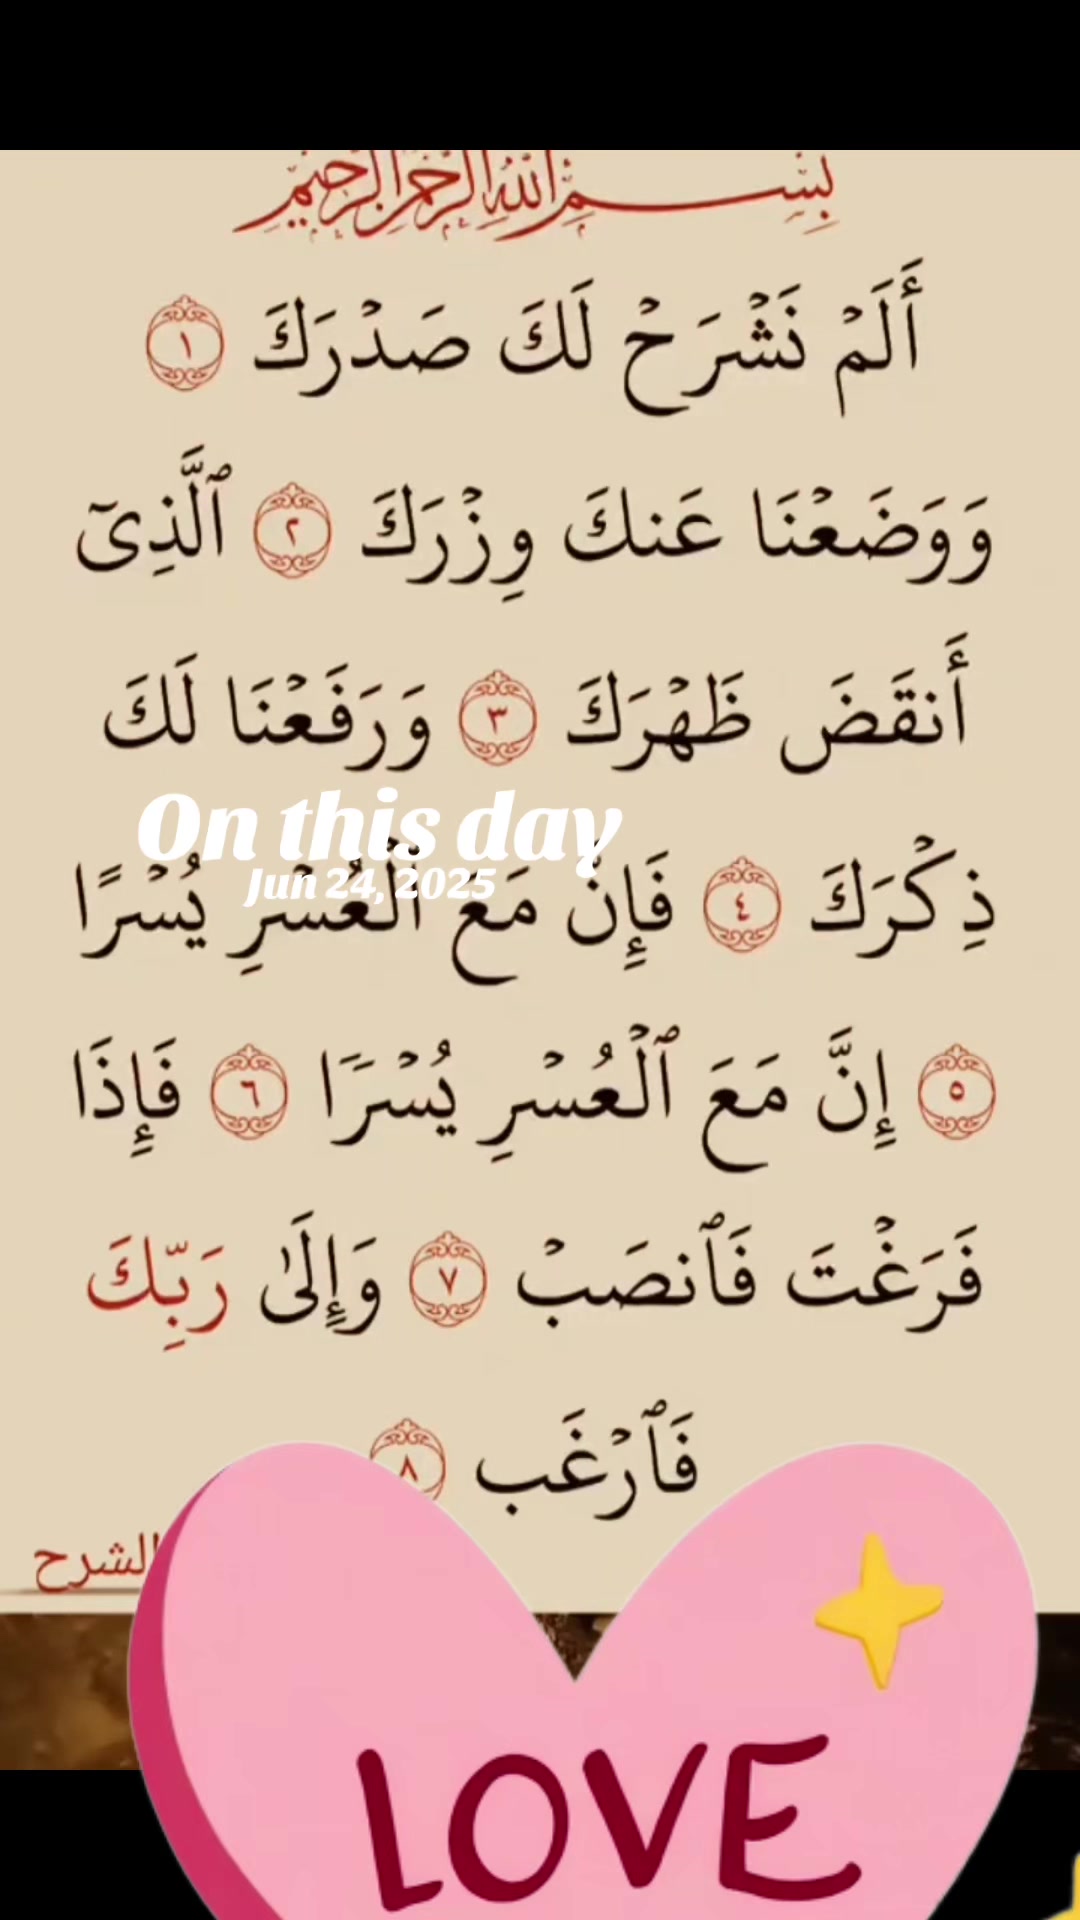 بِسْمِ اللَّهِ الرَّحْمَٰنِ الرَّحِيمِ
أَلَمْ نَشْرَحْ لَكَ صَدْرَكَ ١
وَوَضَعْنَا عَنكَ وِزْرَكَ ٢ ٱلَّذِىٓ
أَنقَضَ ظَهْرَكَ ٣ وَرَفَعْنَا لَكَ
On this day
Jun 24, 2025
ذِكْرَكَ ٤ فَإِنَّ مَعَ ٱلْعُسْرِ يُسْرًا
٥ إِنَّ مَعَ ٱلْعُسْرِ يُسْرًا ٦ فَإِذَا
فَرَغْتَ فَٱنصَبْ ٧ وَإِلَىٰ رَبِّكَ
فَٱرْغَب ٨
الشرح
LOVE